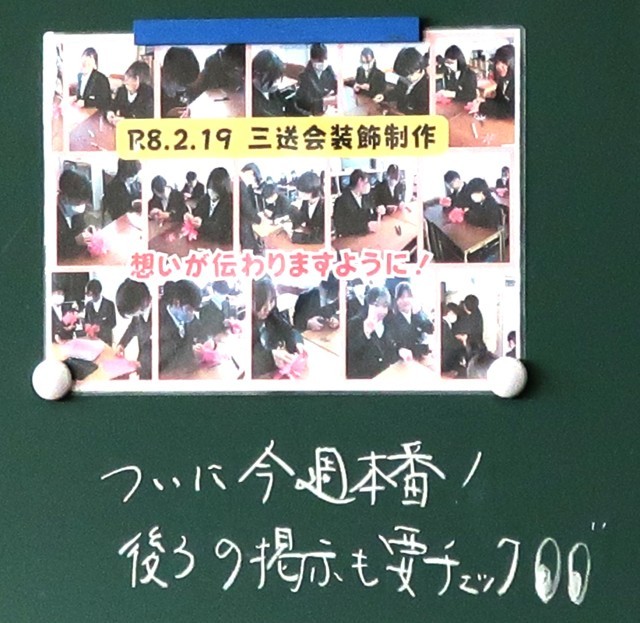 R8.2.19 三送会装飾制作
想いが伝わりますように！
ついに今週本番！
後ろの掲示も要チェック